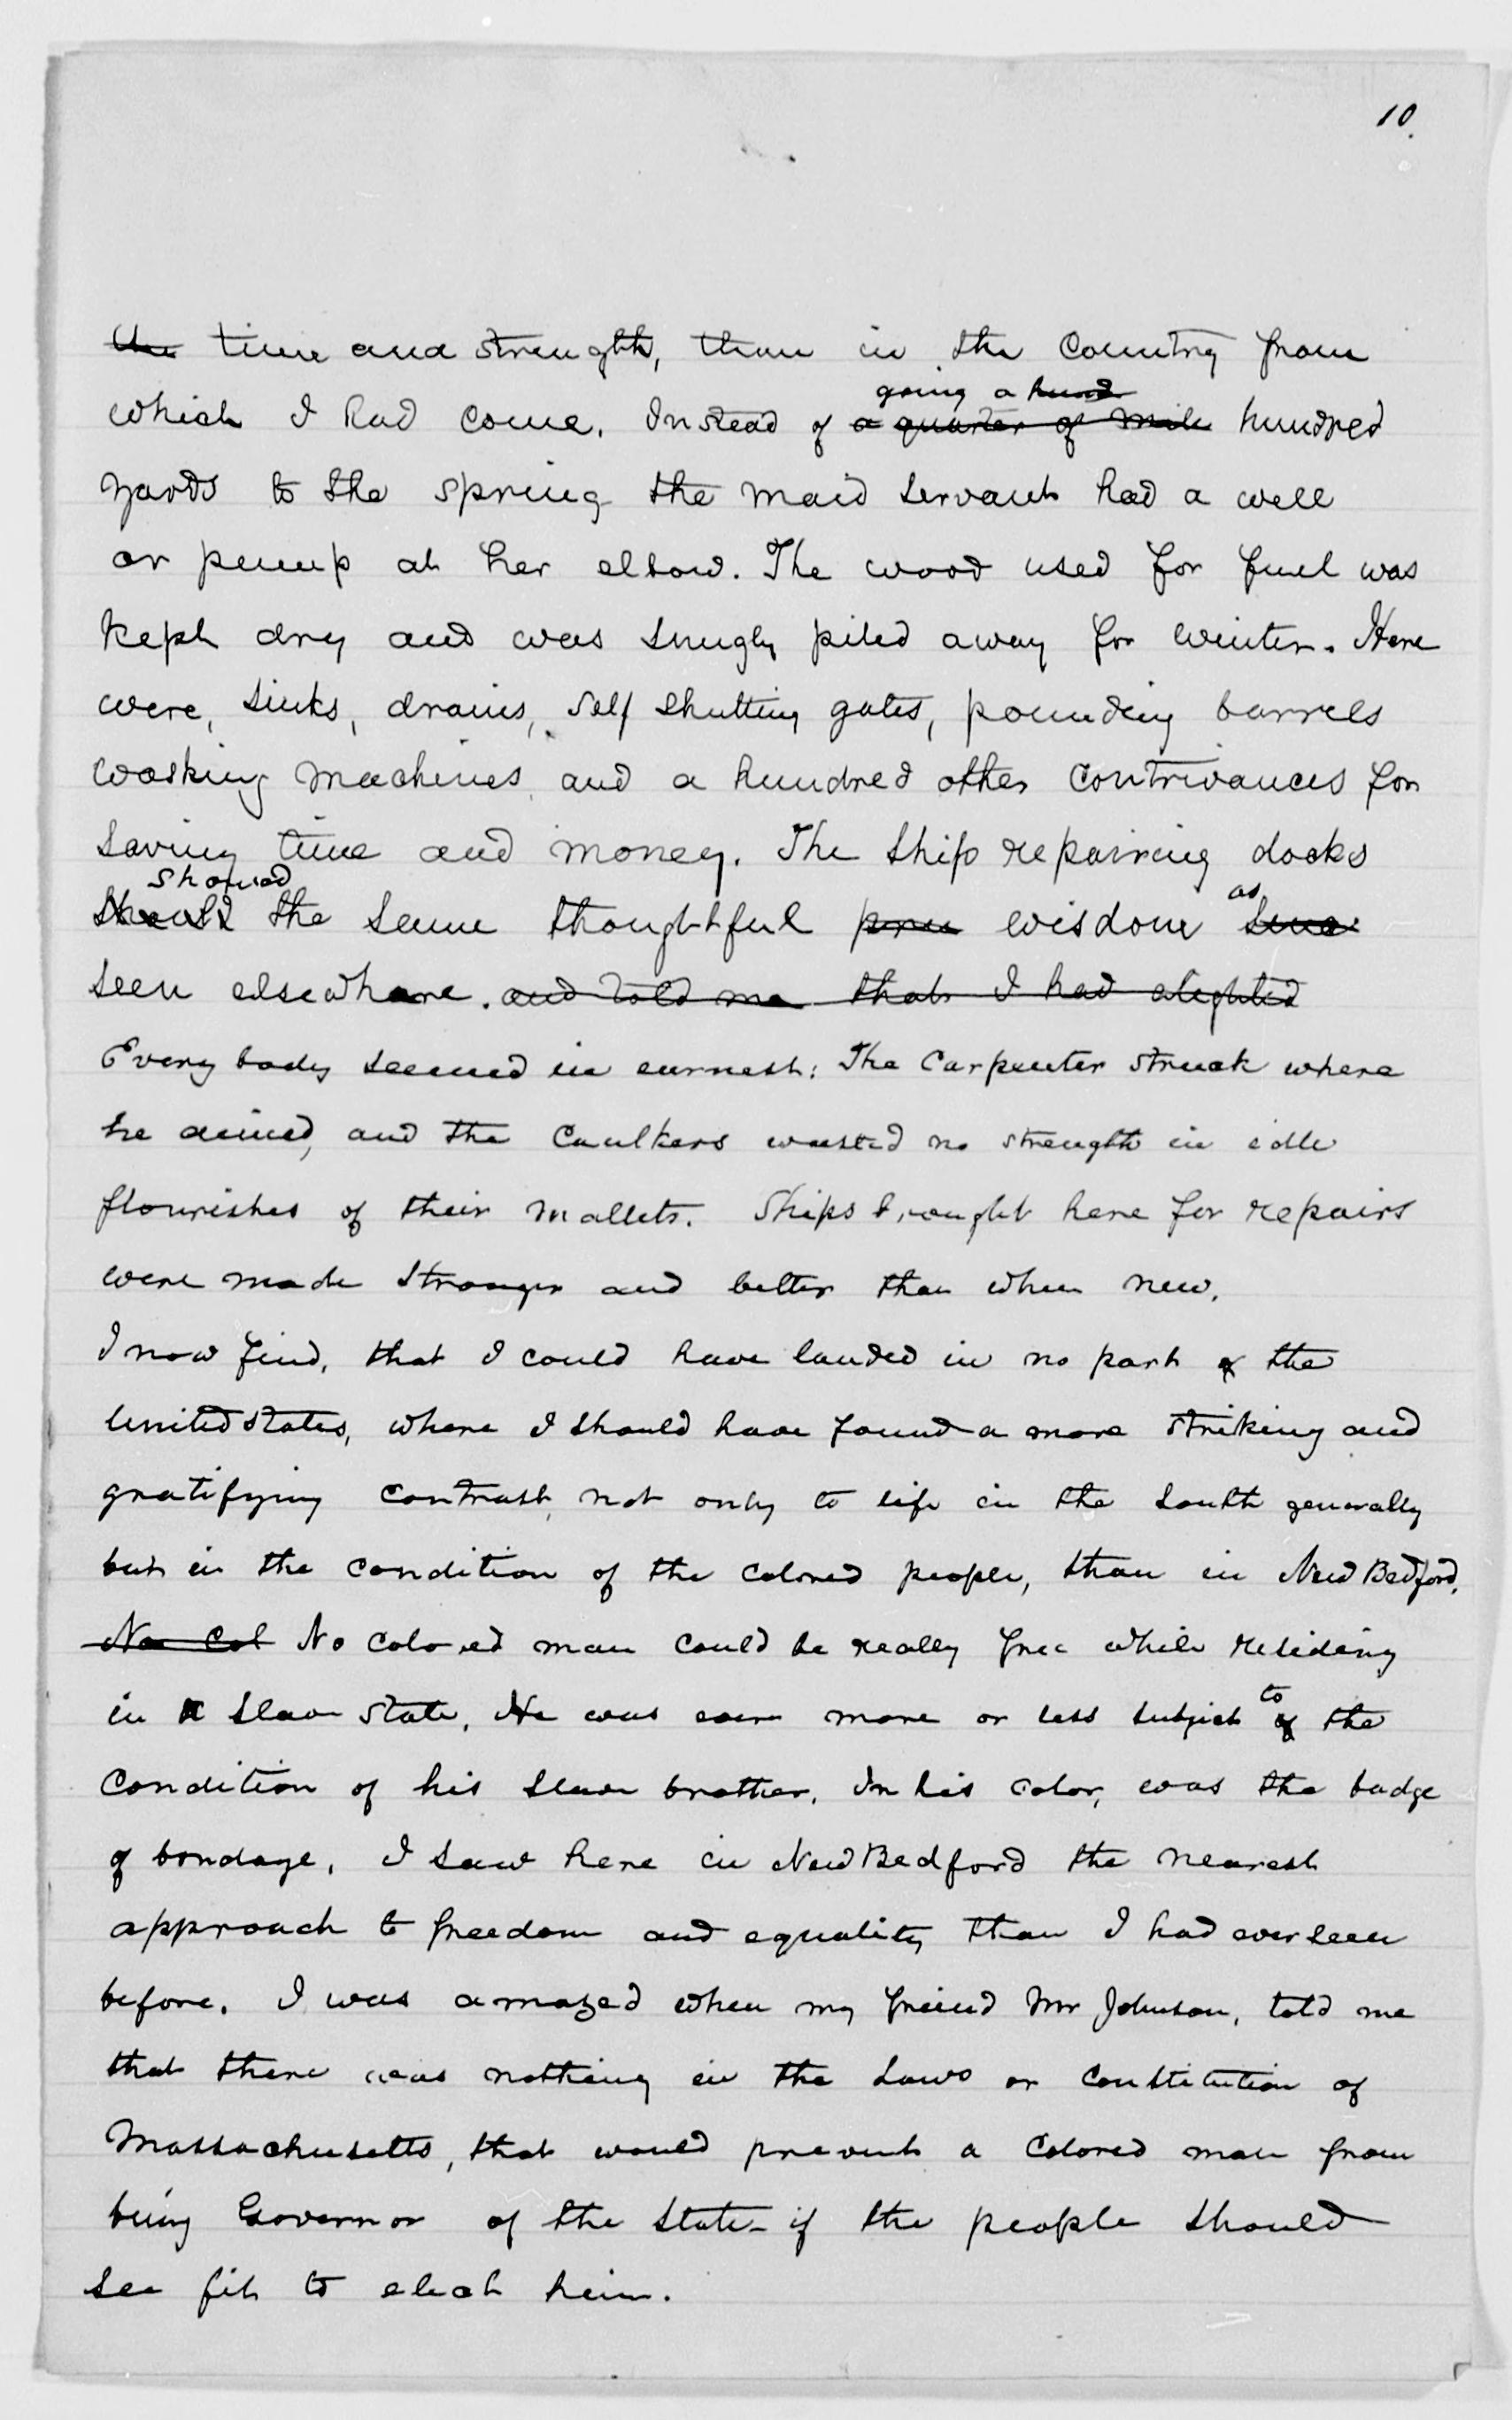 10.
the time and strength, than in the Country from
going a hund
which I had come. Instead of a quarter of mile hundred
yards to the spring the maid servant had a well
or pump at her elbow. The wood used for fuel was
kept dry and was snugly piled away for winter. Here
were, sinks, drains, self shutting gates, pounding barrels
washing machines, and a hundred other contrivances for
saving time and money. The ship repairing docks
showed as
the same thoughtful wisdom
seen elsewhere. and told me that I had alighted
Every body seemed in earnest: The Carpenter struck where
he aimed, and the Caulkers wasted no strength in idle
flourishes of their mallets. Ships brought here for repairs
were made stronger and better than when new.
I now find, that I could have landed in no part of the
United States, where I should have found a more striking and
gratifying contrast, not only to life in the South generally
but in the condition of the colored people, than in New Bedford.
No Col No colored man could be really free while residing
in a slave state. He was ever more or less subject
to
of the
condition of his slave brother. In his color, was the badge
of bondage. I saw here in New Bedford the nearest
approach to freedom and equality than I had ever seen
before. I was amazed when my friend Mr Johnson, told me
that there was nothing in the laws or constitution of
Massachusetts, that would prevent a colored man from
being Governor of the State - if the people should
see fit to elect him.